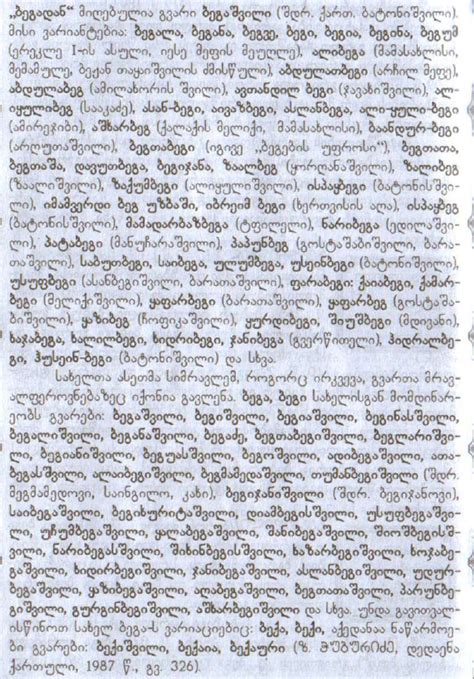 „ბეგადან“ მიღებულია გვარი ბეგაშვილი (შდრ. ქართ. ბატონიშვილი).
მისი ვარიანტებია: ბეგალა, ბეგანა, ბეგვე, ბეგი, ბეგია, ბეგინა, ბეგუმ
(ერეკლე I-ის ასული, იესე მეფის მეუღლე), ალიბეგა (მამასახლისი,
მემამულე, ბეჟან თაყაიშვილის ძმისწული), აბდულათბეგი (არჩილ მეფე),
აბდულაბეგ (ამილახორის შვილი), ავთანდილ ბეგი (ჯავახიშვილი), ალ-
იყულიბეგ (სააკაძე), ასან-ბეგი, აივაზბეგი, ასლანბეგა, ალი-ყული-ბეგი
(ამირეჯიბი), აშხარბეგ (ქალაქის მელიქი, მამასახლისი), ბაანდურ-ბეგი
(არღუთაშვილი), ბეგთაბეგი (იგივე „ბეგების უფროსი“), ბეგთათა,
ბეგთაშა, დავუთბეგა, ბეგიჯანა, ზაალბეგ (ყორღანაშვილი), ზალიბეგ
(ზაალიშვილი), ზაქუმბეგი (ალიყულიშვილი), ისპაყბეგი (ბატონისშვი-
ლი), იმამვერდი ბეგ უზბაში, იბრეიმ ბეგი (ხერთვისის აღა), ისპაყბეგ
(ბატონისშვილი), მამადარბაზბეგა (ტფილელი), ნარიბეგა (ედილაშვი-
ლი), პატაბეგი (მანუჩარაშვილი), პაპუნბეგ (გოსტაშაბიშვილი, ბარა-
თაშვილი), საბუთბეგი, საიბეგა, ულუმბეგა, უსეინბეგი (ბატონიშვილი),
უსუფბეგი (ასანბეგიშვილი, ბარათაშვილი), ფარაბეგი: ქაიაბეგი, ქამარ-
ბეგი (მელიქიშვილი), ყაფარბეგი (ბარათაშვილი), ყაფარბეგ (გოსტაშა-
ბიშვილი), ყაზიბეგ (ჩოფიკაშვილი), ყურდიბეგი, შიუშბეგი (მდივანი),
ხაჯაბეგა, ხალილბეგი, ხიდრიბეგი, ჯანიბეგა (გვერწითელი), ჰიდრალბე-
გი, ჰუსეინ-ბეგი (ბატონიშვილი) და სხვა.
სახელთა ასეთმა სიმრავლემ, როგორც ირკვევა, გვართა მრავ-
ალფეროვნებაზეც იქონია გავლენა. ბეგა, ბეგი სახელისგან მომდინარ-
ეობს გვარები: ბეგაშვილი, ბეგიშვილი, ბეგიაშვილი, ბეგინასშვილი,
ბეგალიშვილი, ბეგანაშვილი, ბეგაძე, ბეგთაბეგიშვილი, ბეგლარიშვი-
ლი, ბეგიანიშვილი, ბეგუასშვილი, ბეგოშვილი, ადიბეგაშვილი, ათა-
ბეგასშვილი, ალაიბეგიშვილი, ბეგმამედაშვილი, თუმანბეგიშვილი (შდრ.
მეგმამედოვი, საინგილო, კახი), ბეგიჯანიშვილი (შდრ. ბეგიჯანოვი),
საიბეგაშვილი, ბეგიხურიტაშვილი, დიამბეგისშვილი, უსუფბეგაშვი-
ლი, უჩუმბეგაშვილი, ყალაბეგაშვილი, შანიბეგაშვილი, შიოშბეგისშ-
ვილი, ნარიბეგასშვილი, შიხინბეგისშვილი, ხაზარბეგიშვილი, ხოჯაბე-
გაშვილი, ხიდირბეგიშვილი, ჯანიბეგაშვილი, ასლანბეგიშვილი, უდურ-
ბეგაშვილი, ყაზიბეგაშვილი, აღაბეგაშვილი, ბეგთათაშვილი, პარუნბე-
გიშვილი, გურგინბეგიშვილი, აშხარბეგიშვილი და სხვა. უნდა გავითვალ-
ისწინოთ სახელ ბეგა-ს ვარიაციებიც: ბექა, ბექი, აქედანაა ნაწარმოე-
ბი გვარები: ბექიშვილი, ბექაია, ბექაური (ზ. ჭუმბურიძე, დედაენა
ქართული, 1987 წ., გვ. 326).